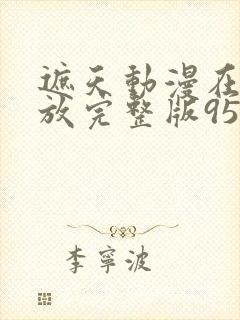 遮天動漫在
放完整版95
李寧波